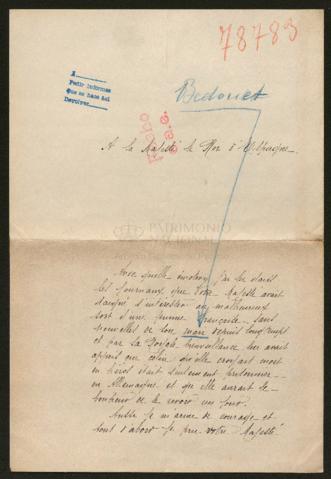 78783
1
Pedir informes
que se hace así
Devolver
Bedouet
A Sa Majesté le Roi d'Espagne
PATRIMONIO
NACIONAL
Avec quelle émotion j'ai lu dans
les journaux que Votre Majesté avait
daigné s'intéresser au malheureux
sort d'une femme française sans
nouvelles de son mari depuis longtemps
et par la Royale bienveillance lui avait
appris que celui qu'elle croyait mort
en héros était seulement prisonnier
en Allemagne et qu'elle aurait le
bonheur de le revoir un jour.
Aussi je m'arme de courage et
tout d'abord je prie votre Majesté